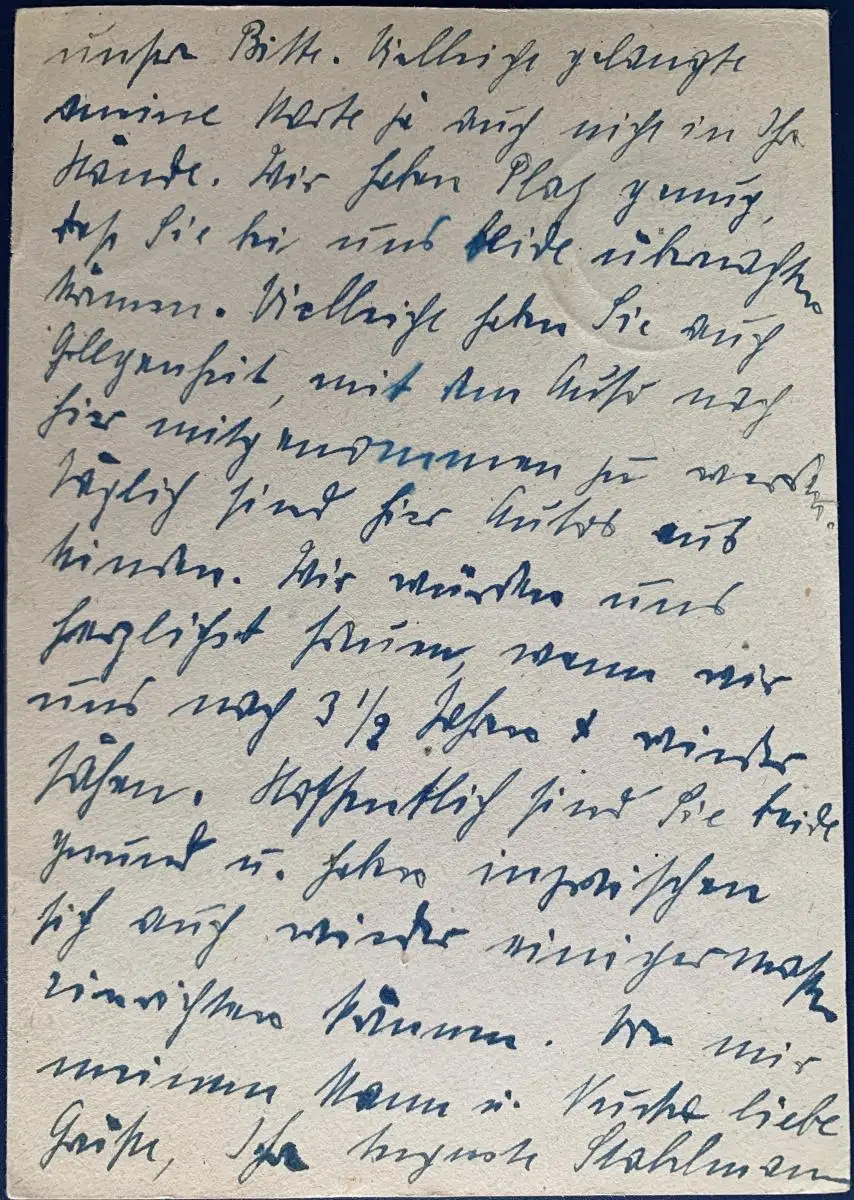 unsre Bitte. Vielleicht gelangte
meine Karte ja auch nicht in Ihre
Hände. Wir haben Platz genug,
daß Sie bei uns beide übernachten
können. Vielleicht haben Sie auch
Gelegenheit, mit dem Auto nach
hier mitgenommen zu werden.
Täglich sind hier Autos aus
. Wir würden uns
herzlichst freuen, wenn wir
uns nach 3 1/2 Jahren wieder
sähen. Hoffentlich sind Sie beide
gesund u. haben inzwischen
sich auch wieder einigermaßen
einrichten können. Von mir
meinem Mann u. liebe
Grüße, Ihre Auguste Stahlmann